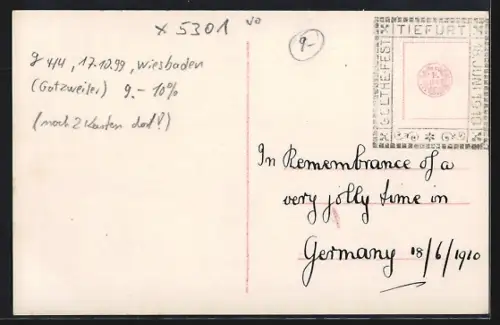 x 5301
9.-
g 4/4, 17.10.99, Wiesbaden
(Gotzweiler) 9.- 10%
(noch 2 Karten dort!)
TIEFURT
GOETHE-FEST
18. JUNI 1910
In Remembrance of a
very jolly time in
Germany 18/6/1910